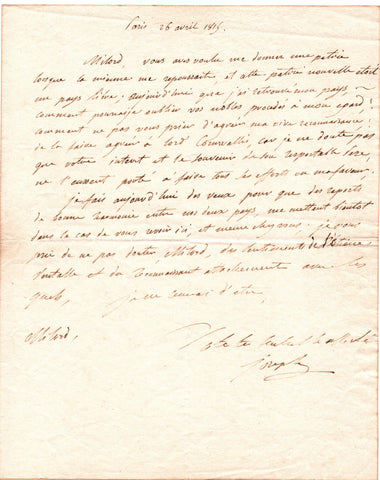 Paris 26 avril 1815.
Milord, vous avez voulu me donner une patrie
lorsque la mienne me repoussait, et cette patrie nouvelle était
un pays libre; aujourd'hui que j'ai retrouvé mon pays,
comment pourrai-je oublier vos nobles procédés à mon égard!
comment ne pas vous prier d'agréer ma vive reconnaissance:
de la faire agréer à lord Cornwallis, car je ne doute pas
que votre interet et le souvenir de son respectable Père,
ne l'eussent porté à faire tous les efforts en ma faveur.
je fais aujourd'hui des vœux pour que des raports
de bonne harmonie entre nos deux pays, me mettent bientot
dans le cas de vous revoir ici, et meme chez vous; je vous
prie de ne pas douter, Milord, des sentiments de l'estime
et du reconnaissant attachement avec les
quels, je ne cesserai d'etre,
Milord,
Votre
Joseph